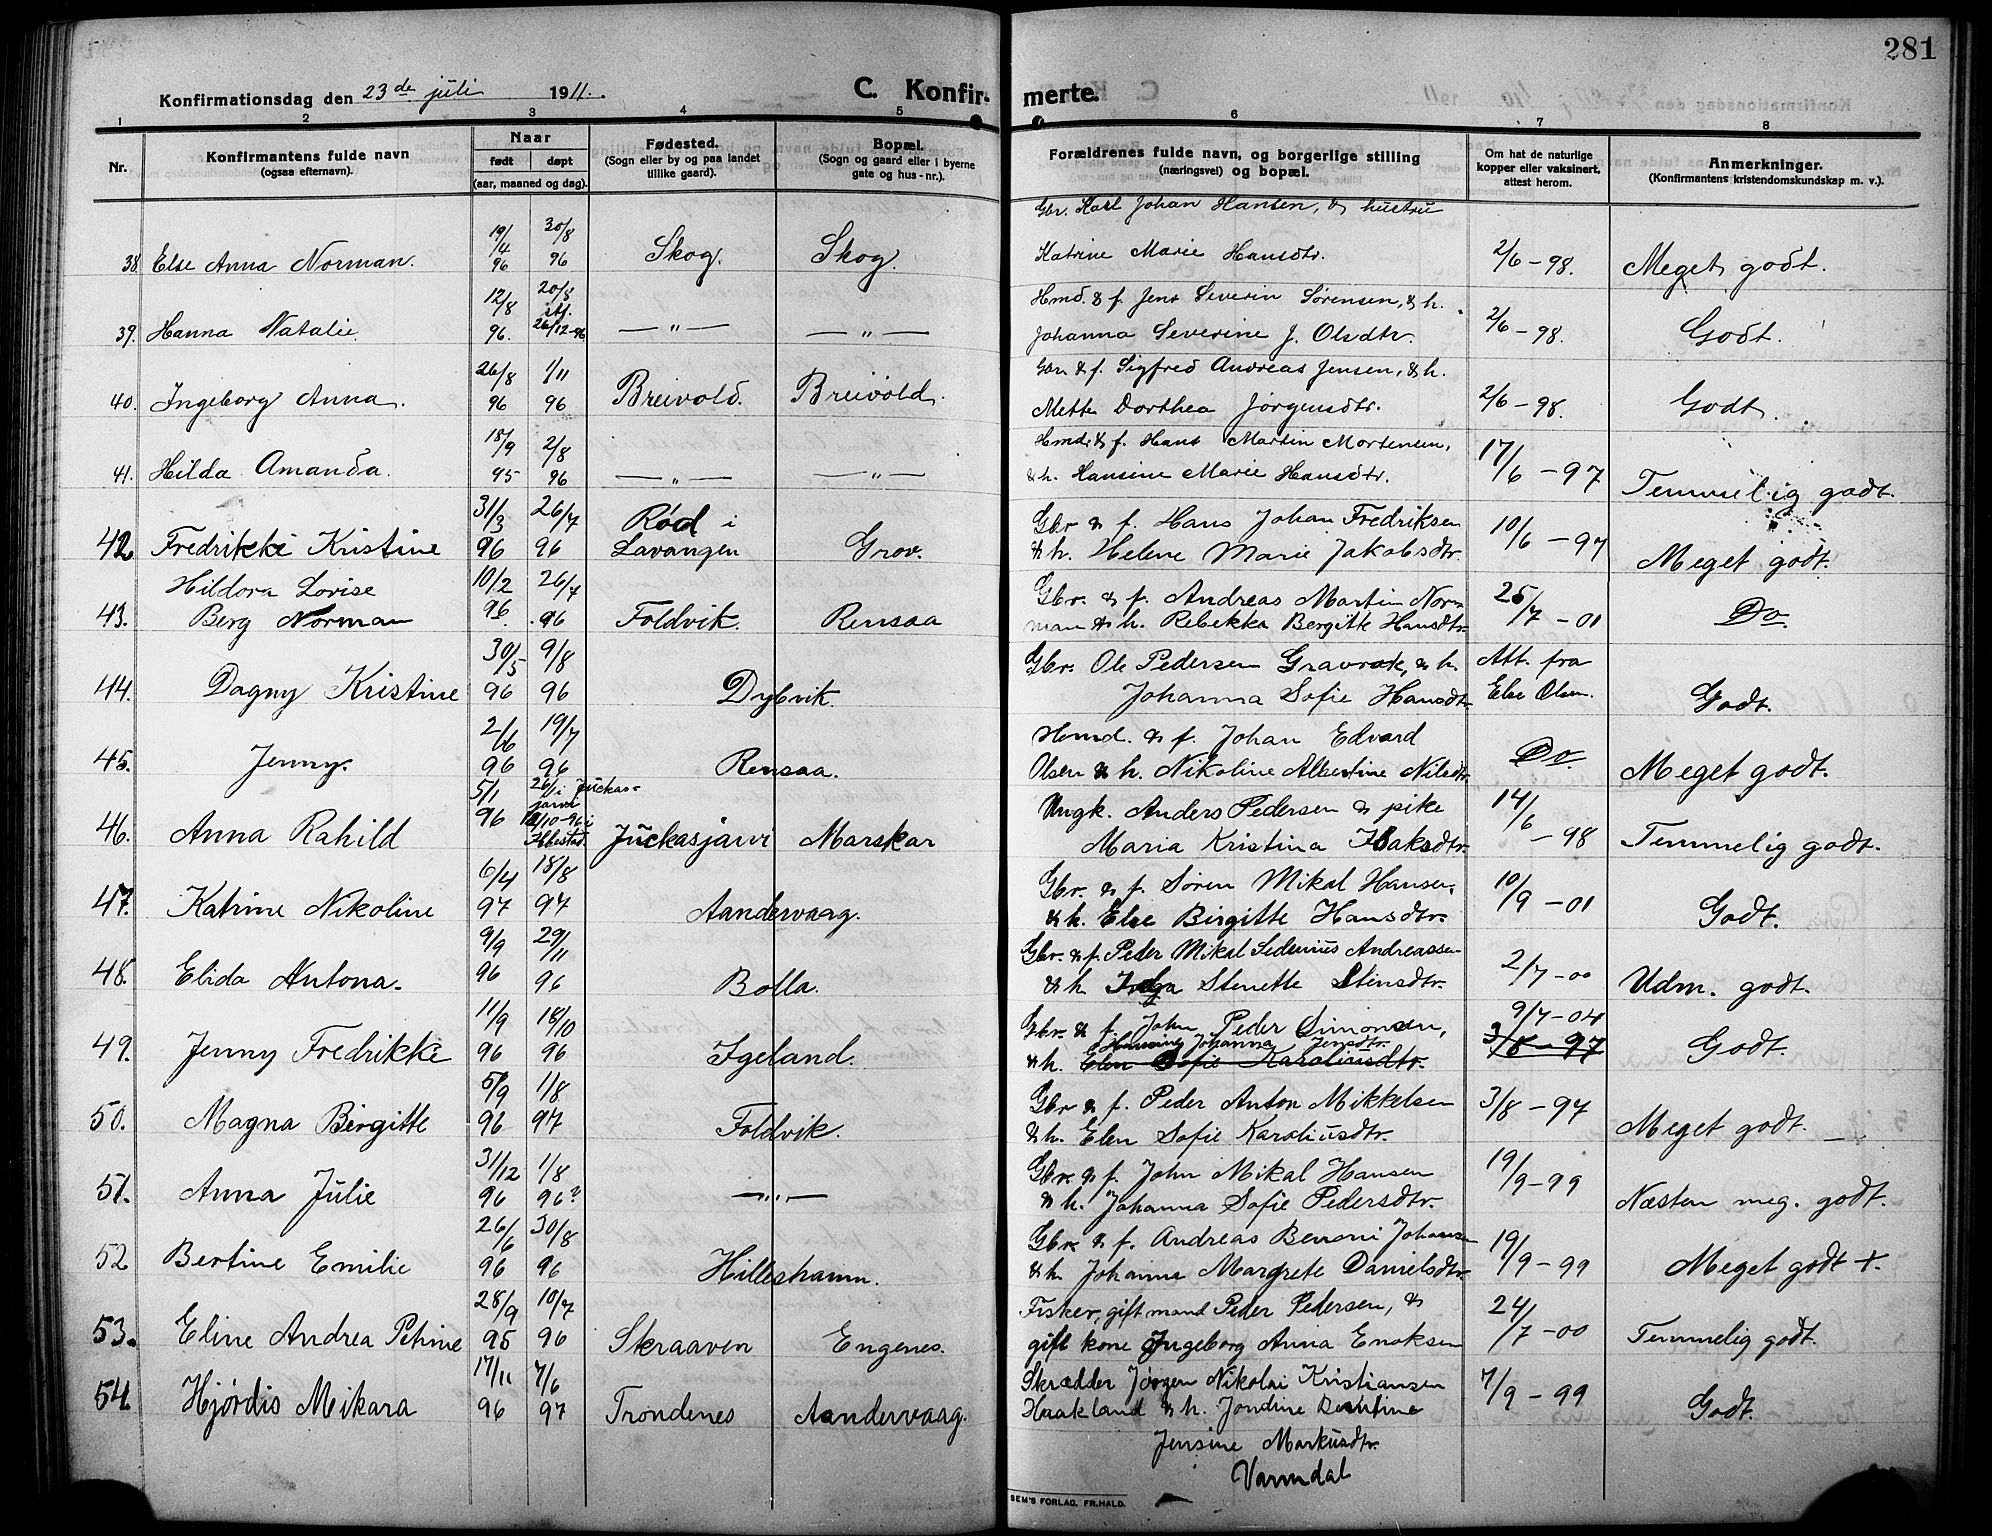 281
Konfirmationsdag den 23de juli 1911.
C. Konfir-
merte.
1 2 3 4 5 6 7 8
Nr.
Konfirmantens fulde navn
(ogsaa efternavn).
Naar
født døpt
(aar, maaned og dag).
Fødested.
(Sogn eller by og paa landet
tillike gaard).
Bopæl.
(Sogn og gaard eller i byerne
gate og hus-nr.).
Forældrenes fulde navn, og borgerlige stilling
(næringsvei) og bopæl.
Om hat de naturlige
kopper eller vaksinert,
attest herom.
Anmerkninger.
(Konfirmantens kristendomskundskap m. v.).
19/4 30/8 Gbr. Karl Johan Hansen, & hustru
38. Else Anna Norman. 96 96 Skog. Skog. Katrine Marie Hansdtr. 2/6-98. Meget godt.
12/8 20/8 stf. Hmd. & f. Jens Severin Sørensen, & h.
39. Hanna Natalie. 96. 26/12-96 —"— —"— Johanna Severine J. Olsdtr. 2/6-98. Godt.
26/8 1/11 Gbr & f. Sigfred Andreas Jensen, & h.
40. Ingeborg Anna. 96 96 Breivold. Breivold. Mette Dorthea Jørgensdtr. 2/6-98. Godt.
18/9 2/8 Hmd. & f. Hans Martin Mortensen,
41. Hilda Amanda. 95 96 —"— —"— & h. Hansine Marie Hansdtr. 17/6-97 Temmelig godt.
31/3 26/7 Rød i Gbr & f. Hans Johan Fredriksen
42. Fredrikke Kristine 96 96 Lavangen Grov. & h. Helene Marie Jakobsdtr. 10/6-97 Meget godt.
Hildora Lovise 10/2 26/7 Gbr. & f. Andreas Martin Nor-
43. Berg Norman 96. 96 Foldvik. Rensaa man & h. Rebekka Bergitte Hansdtr. 25/7-01 Do.
30/5 9/8 Gbr. Ole Pedersen Gravrok, & h. Att. fra
44. Dagny Kristine 96 96 Dybvik. Johanna Sofie Hansdtr. Else Olsen. Godt.
2/6 19/7 Hmd. & f. Johan Edvard
45. Jenny. 96 96 Rensaa. Olsen & h. Nikoline Albertine Nilsdtr. Do. Meget godt.
5/1 26/1 i Juckas-
jarvi Ungk. Anders Pedersen & pike
46. Anna Rahild 96 /10-96 i Ibbestad. Juckasjarvi Marskar Maria Kristina Isaksdtr. 14/6-98 Temmelig godt.
6/4 18/8 Gbr. & f. Søren Mikal Hansen,
47. Katrine Nikoline 97 97 Aandervaag. & h. Else Birgitte Hansdtr. 10/9-01 Godt.
9/9 29/11 Gbr. & f. Peder Mikal Sedenius Andreassen
48. Elida Antona. 96 96 Bolla. & h. Stenette Stensdtr. 2/7-00 Udm. godt.
11/9 18/10 Gbr. & f. John Peder Simonsen, 9/7-04
Johanna Jensdtr.
49. Jenny Fredrikke 96 96 Igeland. & h. Elen Sofie Karoliusdtr. 3/8-97 Godt.
5/9 1/8 Gbr & f. Peder Anton Mikkelsen
50. Magna Birgitte 96 97 Foldvik. & h. Elen Sofie Karoliusdtr. 3/8-97 Meget godt.
31/12 1/8 Gbr. & f. John Mikal Hansen
51. Anna Julie 96 96? —"— & h. Johanna Sofie Pedersdtr. 19/9-99 Næsten meg. godt.
26/6 30/8 Gbr. & f. Andreas Benoni Johansen
52 Bertine Emilie 96 96 Hilleshamn. & h. Johanna Margrete Danielsdtr. 19/9-99 Meget godt +.
28/9 10/7 Fisker, gift mand Peder Pedersen, &
53. Eline Andrea Petrine 95 96 Skraaven Engenes. gift kone Ingeborg Anna Enoksen 24/7-00 Temmelig godt.
17/11 7/6 Skrædder Jørgen Nikolai Kristiansen
54 Hjørdis Mikara 96 97 Trondenes Aandervaag. Haakland & h. Jondine 7/9-99 Godt.
Jensine Markusdtr.
Varmdal
SEM'S FORLAG, FR.HALD.